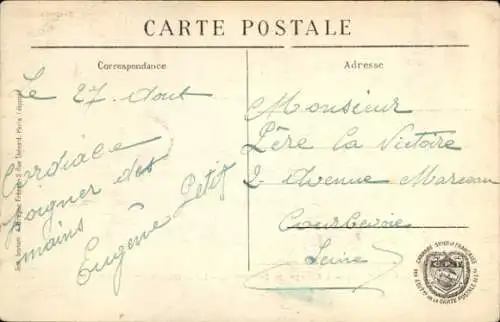 CARTE POSTALE
Correspondance
Adresse
Le 27. Aout
Cordiale
poigner des
mains
Eugène Petit
Monsieur
Père la Victoire
2 Avenue Marceau
Courbevoie
Seine
CHAMBRE SYND. FRANÇAISE
DE LA CARTE POSTALE